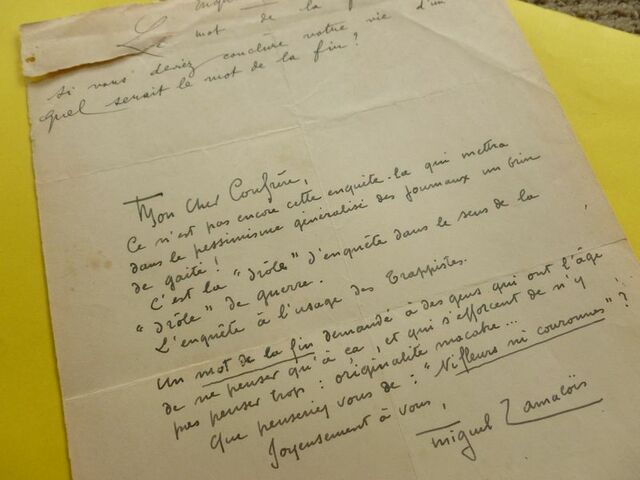 Enqu
Le mot de la f
si vous deviez conclure votre vie d'un
quel serait le mot de la fin ?
Mon cher Confrère,
Ce n'est pas encore cette enquête-là qui mettra
dans le pessimisme généralisé des journaux un brin
de gaité !
C'est la "drôle" d'enquête dans le sens de la
"drôle" de guerre.
L'enquête à l'usage des Trappistes.
Un mot de la fin demandé à des gens qui ont l'âge
de ne penser qu'à ça, et qui s'efforcent de n'y
pas penser trop : originalité macabre...
Que penseriez vous de : "Ni fleurs ni couronnes" ?
Joyeusement à vous,
Miguel Zamacoïs